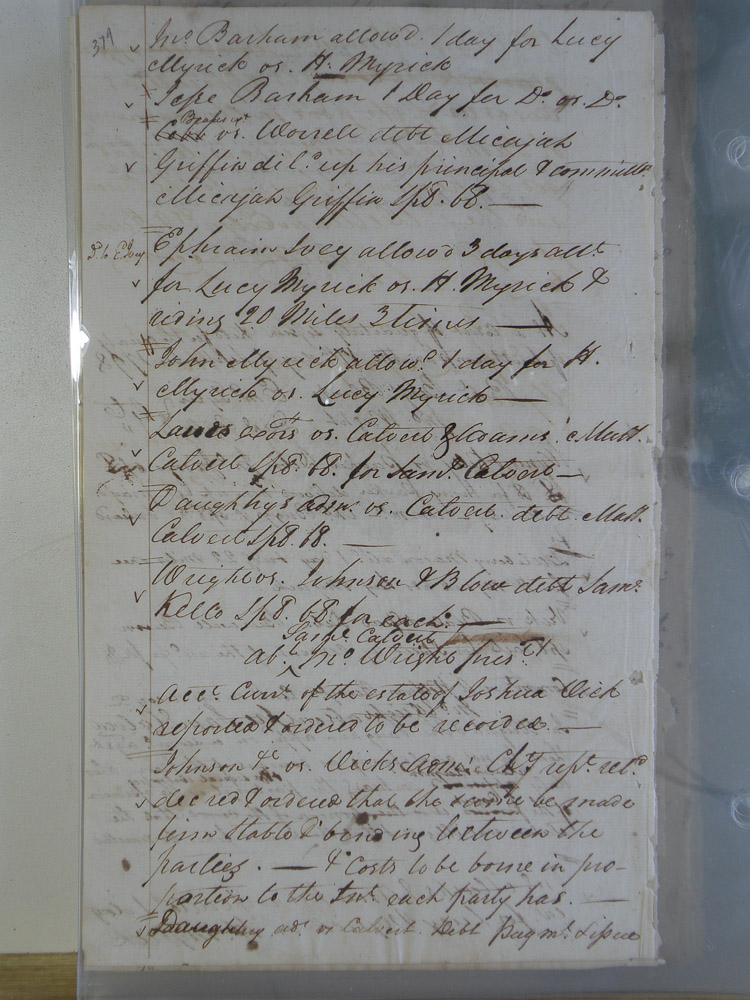 374
Jno. Barham allow'd. 1 day for Lucy
Myrick vs. H. Myrick
Jesse Barham 1 Day for Do. vs. Do.
vs. Worrell debt Micajah
Griffin dil'd. up his principal & committd.
Micajah Griffin Spl. bl.
Ephraim Ivey allow'd 3 days att.
for Lucy Myrick vs. H. Myrick &
riding 20 Miles 3 times
John Myrick allowd. 1 day for H.
Myrick vs. Lucy Myrick
exors vs. Calvert & Adams. Matt.
Calvert Spl. bl. for Saml. Calvert
Daughtry's adm. vs. Calvert debt Matt.
Calvert Spl. bl.
Wright vs. Johnson & Blow debt Saml.
Kello Spl. bl. for each.
Saml. Calvert
ab. Jno. Wright prest.
Acct. Curt. of the estate of Joshua Dick
reported & ordered to be recorded.
Johnson &c vs. Dicks adm: Chy rept. retd.
decreed & ordered that the same be made
firm stable & binding between the
parties. — & costs to be borne in pro-
portion to the Int. each party has.
Daughtry ad. vs Calvert. Debt paymt. & issue